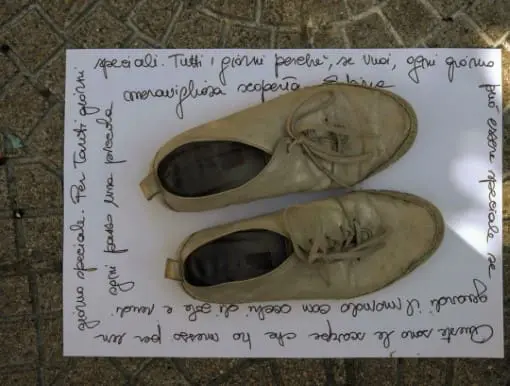 Queste sono le scarpe che ho messo per un
giorno speciale. Per tanti giorni
speciali. Tutti i giorni perché, se vuoi, ogni giorno
può essere speciale se
guardi il mondo con occhi di sole e rendi
ogni passo una piccola
meravigliosa scoperta